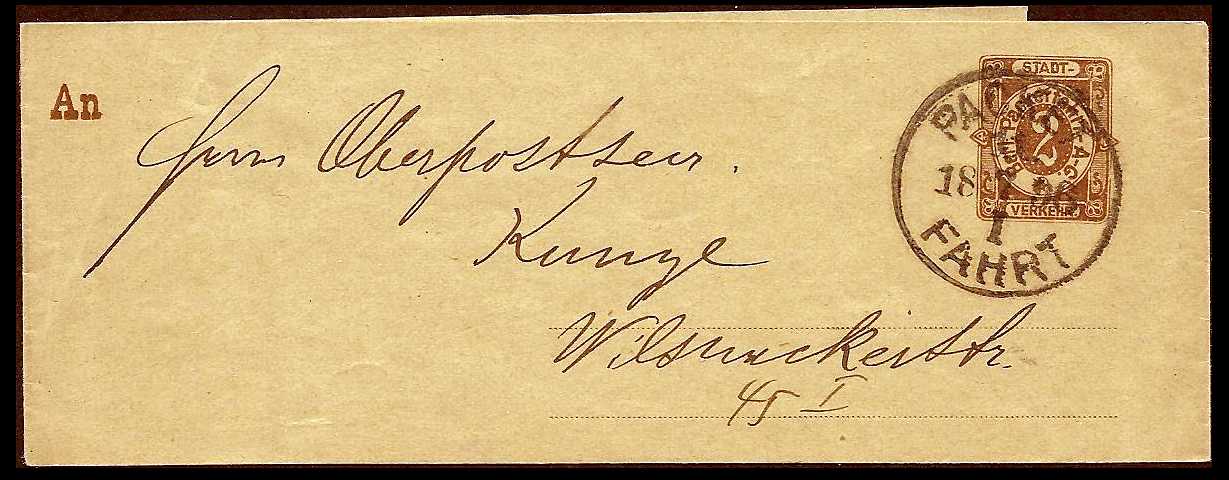 An
Herrn Oberpostsecr.
Kunze
Wilsnackerstr.
45 I
STADT-
Packetfahrt-A-G.
2
VERKEHR
PAC
18 96
I
FAHRT